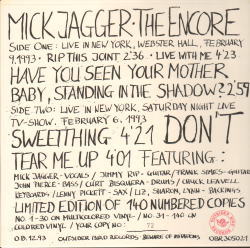 MICK JAGGER · THE ENCORE
SIDE ONE: LIVE IN NEW YORK, WEBSTER HALL, FEBRUARY
9.1993 · RIP THIS JOINT 2'36 · LIVE WITH ME 4'23
HAVE YOU SEEN YOUR MOTHER
BABY, STANDING IN THE SHADOW? 2'59
SIDE TWO: LIVE IN NEW YORK, SATURDAY NIGHT LIVE
TV-SHOW. FEBRUARY 6.1993
SWEETTHING 4'21 DON'T
TEAR ME UP 4'01 FEATURING:
MICK JAGGER-VOCALS / JIMMY RIP-GUITAR / FRANK SIMES-GUITAR
JOHN PIERCE-BASS / CURT BISQUERA-DRUMS / CHUCK LEAVELL-
KEYBOARDS / LENNY PICKETT-SAX / LIZ, SHARON, LYNN-BACKINGS
LIMITED EDITION OF 140 NUMBERED COPIES
NO. 1-30 ON MULTICOLORED VINYL / NO. 31-140 ON
COLORED VINYL / YOUR COPY NO: 72
OUTSIDER BIRD RECORDS